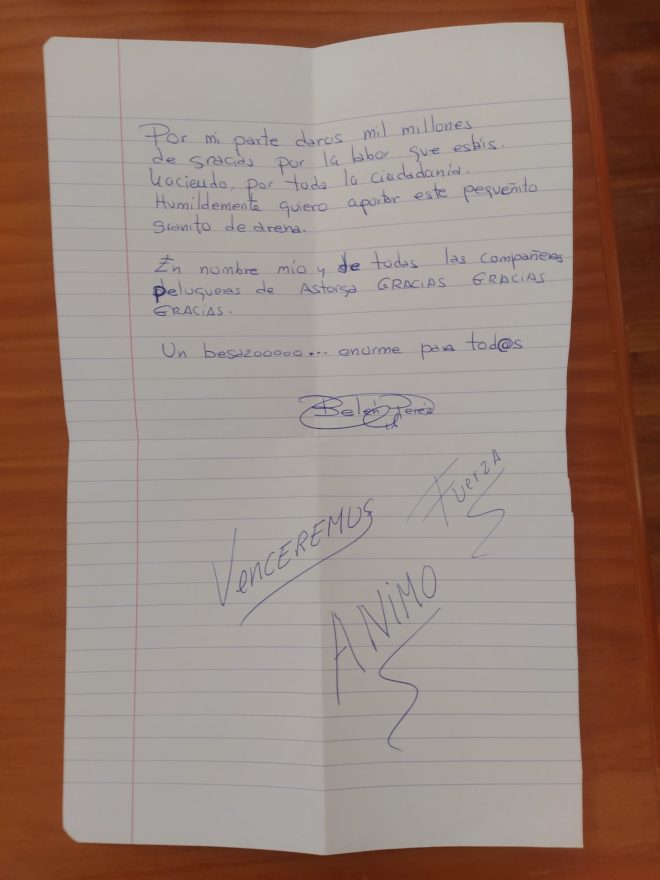 Por mi parte daros mil millones
de gracias por la labor que estáis.
haciendo, por toda la ciudadanía.
Humildemente quiero aportar este pequeñito
granito de arena.
En nombre mío y de todas las compañeras
peluqueras de Astorga GRACIAS GRACIAS
GRACIAS.
Un besazooooo... enorme para tod@s
Belén Pérez
FuerzA
VenCEREMOS
ANiMO